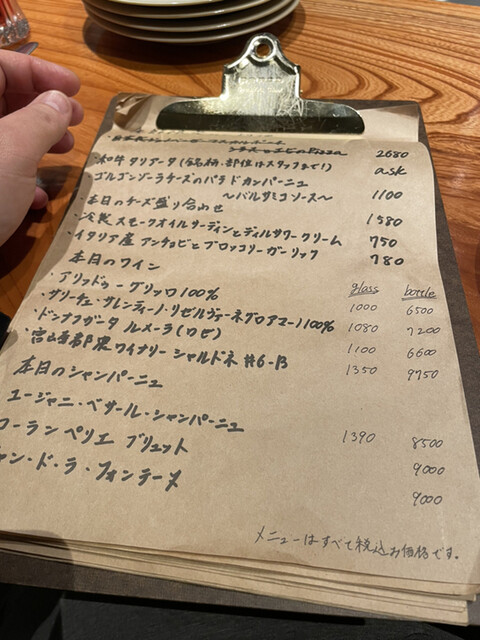 シチボーとエビのPizza 2680
・和牛タリアータ(銘柄・部位はスタッフまで!) ask
ゴルゴンゾーラチーズのパラドカンパーニュ
〜バルサミコソース〜 1100
・本日のチーズ盛り合わせ 1580
・冷製スモークオイルサーディンとディルサワークリーム 750
・イタリア産アンチョビとブロッコリーガーリック 780
本日のワイン glass bottle
・アリッドゥーグリッロ100% 1000 6500
・サリーチェ・サレンティーノ・リゼルヴァーネグロアマーロ100% 1080 7200
・ドンナフガータ ルメーラ(ロゼ) 1100 6600
・宮崎都農ワイナリー シャルドネ #6-B 1350 9750
本日のシャンパーニュ
ユージャニ・ベザール・シャンパーニュ 1390 8500
ローランペリエ ブリュット 9000
ャン・ド・ラ・フォンテーヌ 9000
メニューはすべて税込お価格です。